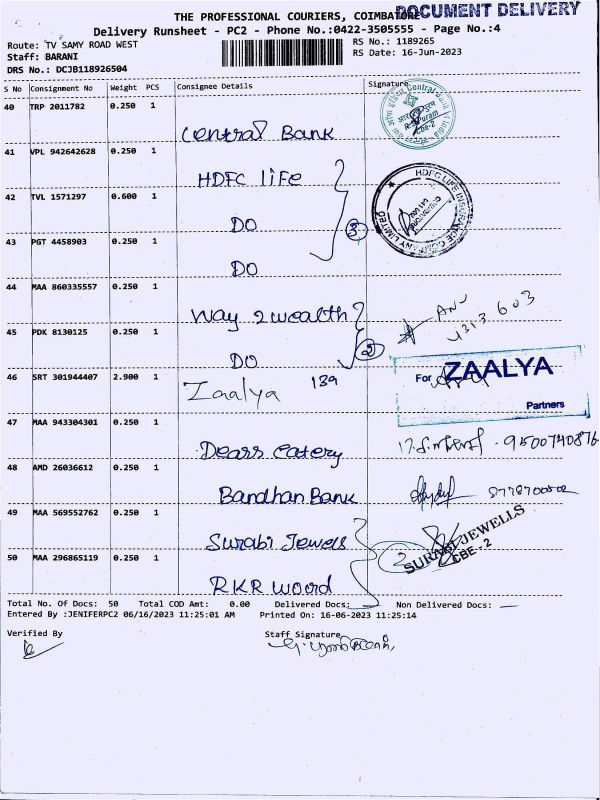 THE PROFESSIONAL COURIERS, COIMBATORE
DOCUMENT DELIVERY
Delivery Runsheet - PC2 - Phone No.:0422-3505555 - Page No.:4
Route: TV SAMY ROAD WEST
RS No.: 1189265
Staff: BARANI
RS Date: 16-Jun-2023
DRS No.: DCJB118926504
S No Consignment No Weight PCS Consignee Details Signature
40 TRP 2011782 0.250 1
Central Bank
Central Bank of India
R.S. Puram
CBE-2
41 VPL 942642628 0.250 1
HDFC liFe
HDFC LIFE INSURANCE COMPANY LIMITED
42 TVL 1571297 0.600 1
DO
3
43 PGT 4458903 0.250 1
DO
44 MAA 860335557 0.250 1
Way 2 wealth
45 PDK 8130125 0.250 1
DO
2
46 SRT 301944407 2.900 1
Zaalya 139
For ZAALYA
Partners
47 MAA 943304301 0.250 1
Dears eatery
9500740876
48 AMD 26036612 0.250 1
Bandhan Bank
49 MAA 569552762 0.250 1
Surabi Jewells
2
SURABI JEWELLS
CBE-2
50 MAA 296865119 0.250 1
RKR Woord
Total No. Of Docs: 50 Total COD Amt: 0.00 Delivered Docs: Non Delivered Docs:
Entered By :JENIFERPC2 06/16/2023 11:25:01 AM Printed On: 16-06-2023 11:25:14
Verified By
Staff Signature